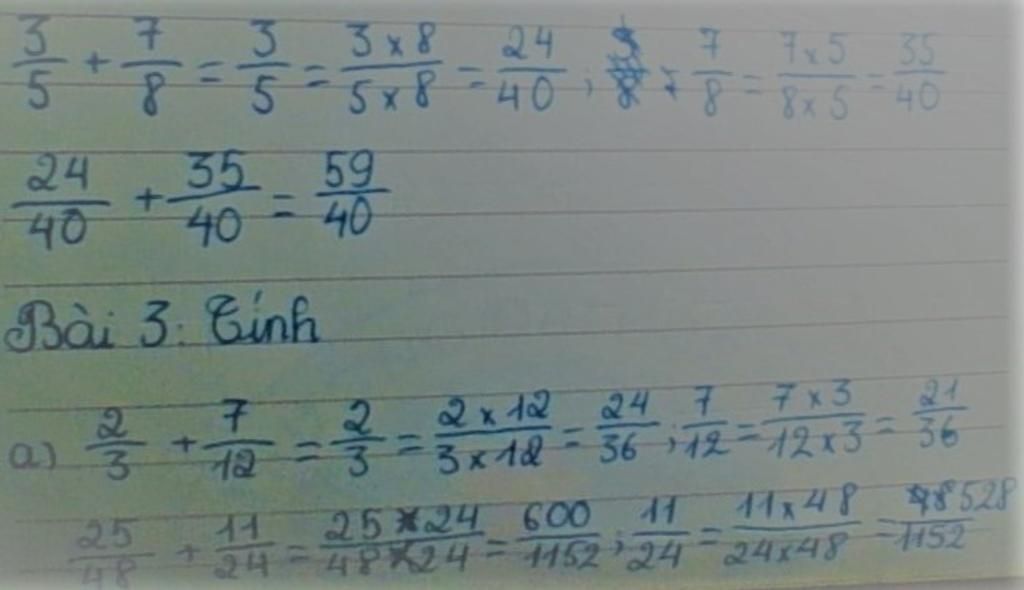 3/5 + 7/8 = 3/5 = 3 x 8 / 5 x 8 = 24/40 ; 7/8 = 7 x 5 / 8 x 5 = 35/40
24/40 + 35/40 = 59/40
Bài 3: Tính
a) 2/3 + 7/12 = 2/3 = 2 x 12 / 3 x 12 = 24/36 ; 7/12 = 7 x 3 / 12 x 3 = 21/36
25/48 + 11/24 = 25 x 24 / 48 x 24 = 600/1152 ; 11/24 = 11 x 48 / 24 x 48 = 528/1152